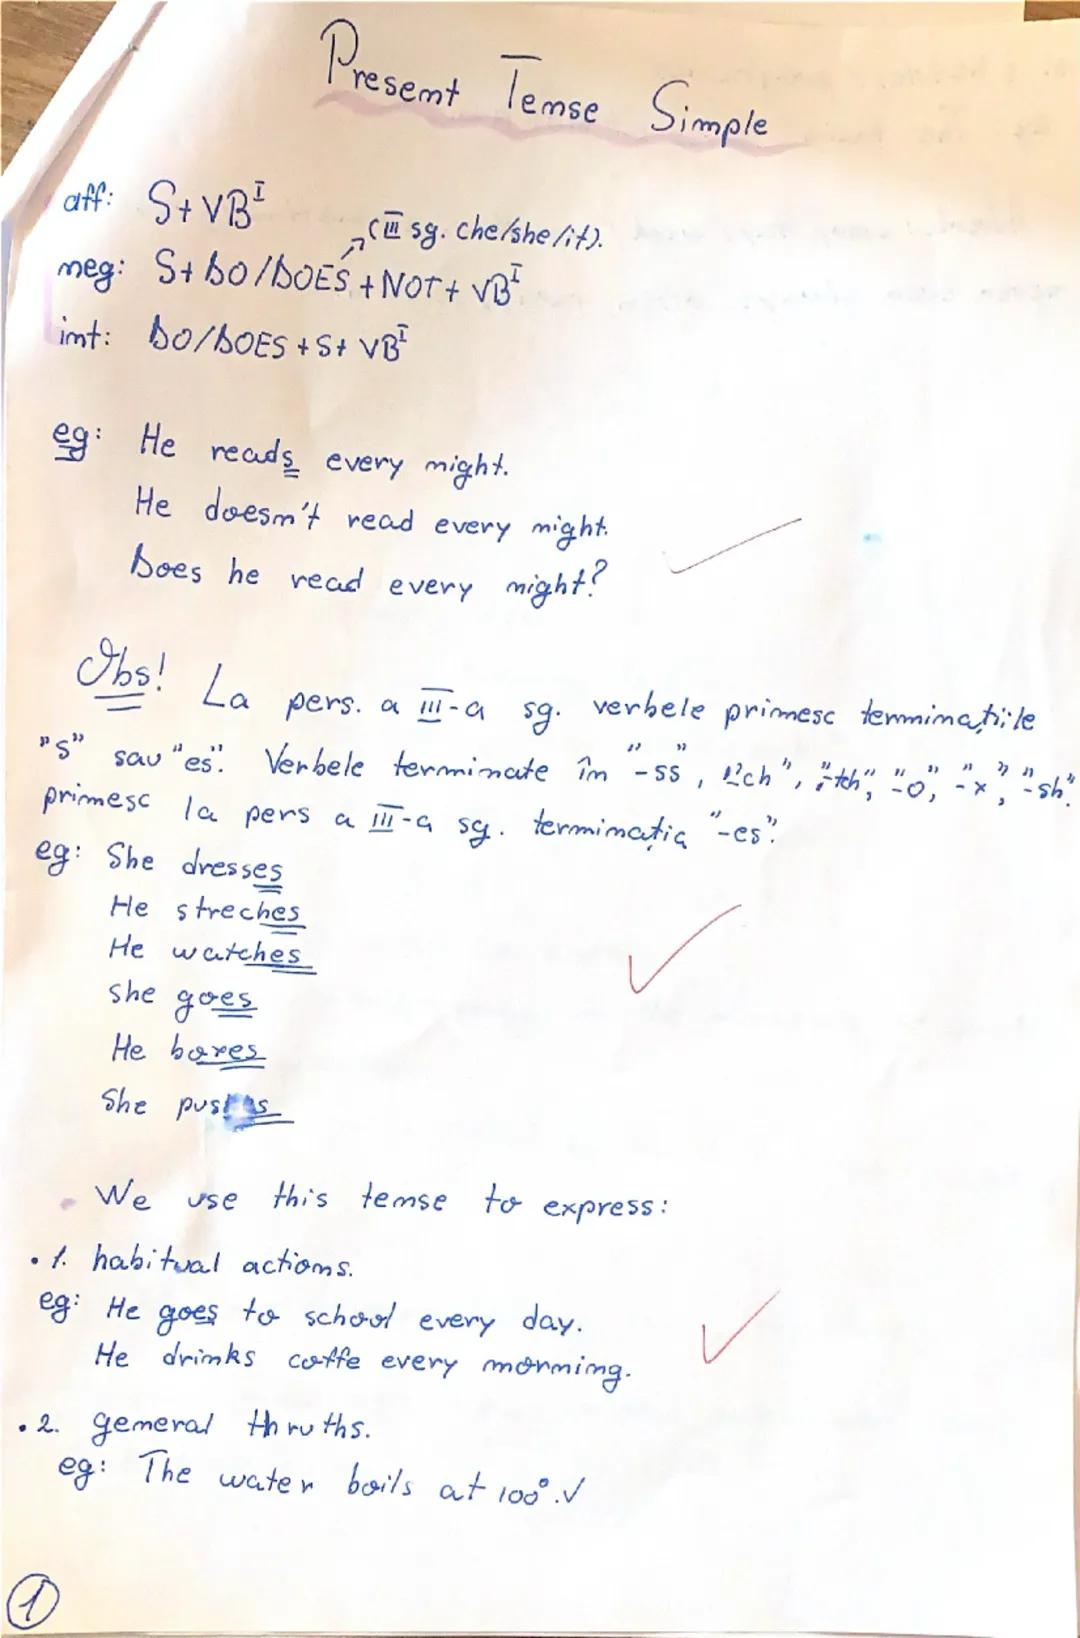 Present Tense Simple
aff: S+VB^I
(III sg. (he/she/it).
neg: S+DO/DOES+NOT+VB^I
int: DO/DOES+S+VB^I
eg: He reads every night.
He doesn't read every night.
Does he read every night?
Obs! La pers. a III-a sg. verbele primesc terminațiile
"s" sau "es". Verbele terminate în "-ss", "-ch", "-tch", "-o", "-x", "-sh"
primesc la pers a III-a sg. terminația "-es".
eg: She dresses
He streches
He watches
She goes
He boxes
She
We use this tense to express:
• 1. habitual actions.
eg: He goes to school every day.
He drinks coffe every morning.
• 2. general thruths.
eg: The water boils at 100°.✓
1